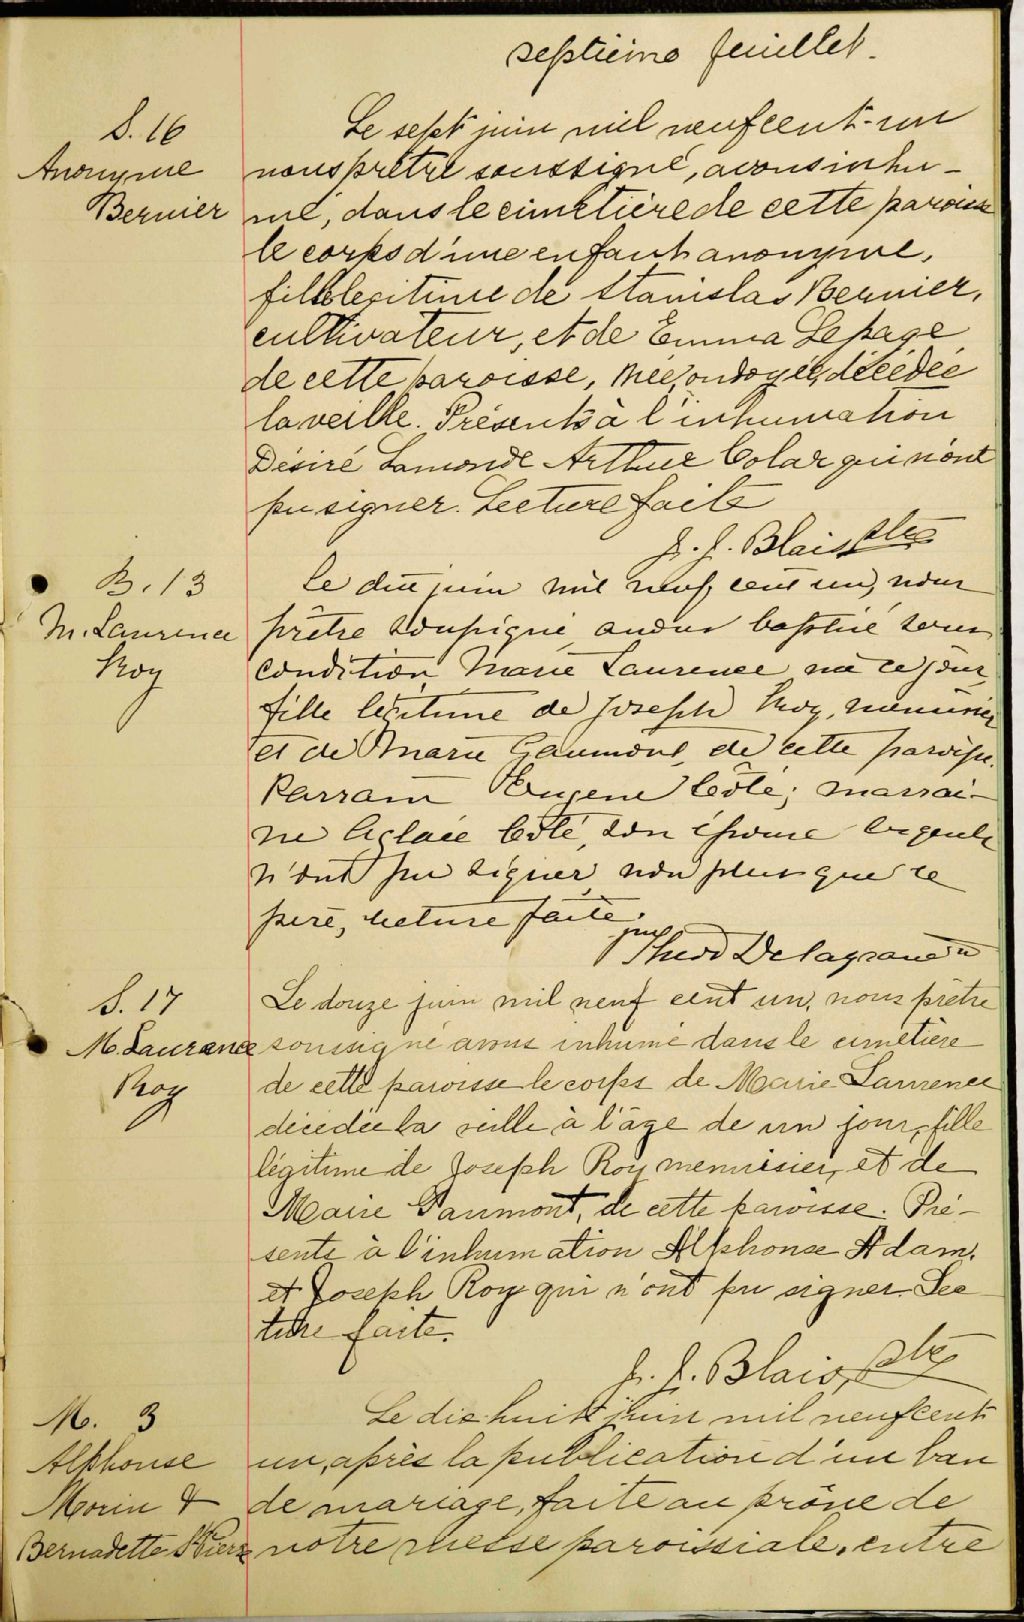 septième feuillet.
S. 16
Anonyme
Bernier
Le sept juin mil neuf cent-un
nous prêtre soussigné, avons inhu-
mé, dans le cimetière de cette paroisse
le corps d'une enfant anonyme,
fille legitime de Stanislas Bernier,
cultivateur, et de Emma Lepage
de cette paroisse, née, ondoyée, décédée
la veille. Présents à l'inhumation
Désiré Lamonde Arthur Colar qui n'ont
pu signer. Lecture faite
J. J. Blais ptre
B. 13
M. Laurence
Roy
Le dix juin mil neuf cent un, nous
prêtre soussigné avons baptisé sous
condition Marie Laurence née ce jour,
fille légitime de Joseph Roy, menuisier
et de Marie Gaumont, de cette paroisse.
Parrain Eugene Côté; marrai-
ne Aglaée Côté, son épouse lesquels
n'ont pu signer, non plus que le
père, lecture faite.
Theod Delagrave
S. 17
M. Laurence
Roy
Le douze juin mil neuf cent un, nous prêtre
soussigné avons inhumé dans le cimetière
de cette paroisse le corps de Marie Laurence
décédée la veille à l'âge de un jour, fille
légitime de Joseph Roy menuisier, et de
Marie Gaumont, de cette paroisse. Pré-
sents à l'inhumation Alphonse Adam,
et Joseph Roy qui n'ont pu signer. Lec
ture faite.
J. J. Blais, ptre
M. 3
Alphonse
Morin &
Bernadette
Le dix-huit juin mil neuf cent
un, après la publication d'un ban
de mariage, faite au prône de
notre messe paroissiale, entre